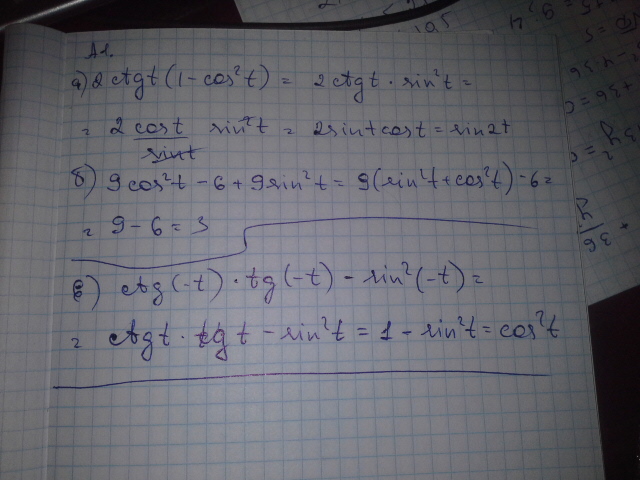 А1.
а) 2ctgt(1-cos²t) = 2ctgt · sin²t =
= 2 cost/sint sin²t = 2sintcost = sin2t
б) 9cos²t - 6 + 9sin²t = 9(sin²t + cos²t) - 6 =
= 9 - 6 = 3
в) ctg(-t) · tg(-t) - sin²(-t) =
= ctgt · tgt - sin²t = 1 - sin²t = cos²t